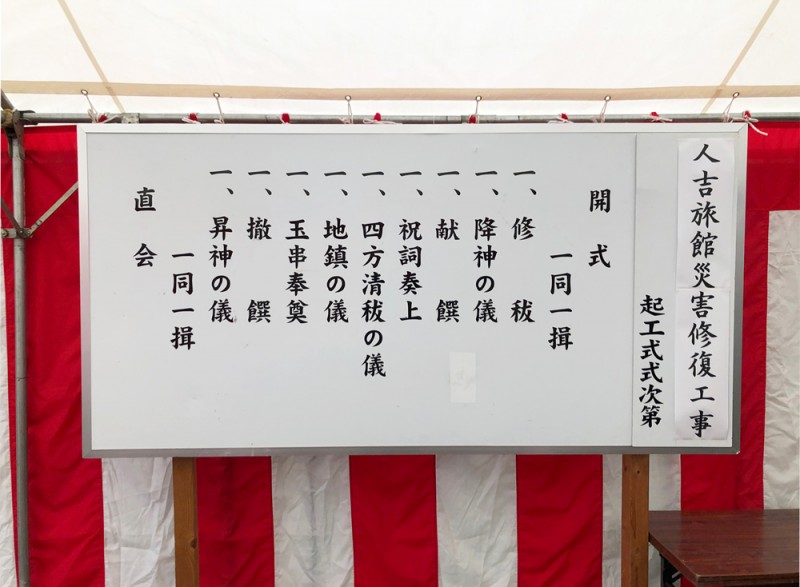 人吉旅館災害修復工事
起工式式次第
開式
一同一揖
一、修祓
一、降神の儀
一、献饌
一、祝詞奏上
一、四方清祓の儀
一、地鎮の儀
一、玉串奉奠
一、撤饌
一、昇神の儀
一同一揖
直会